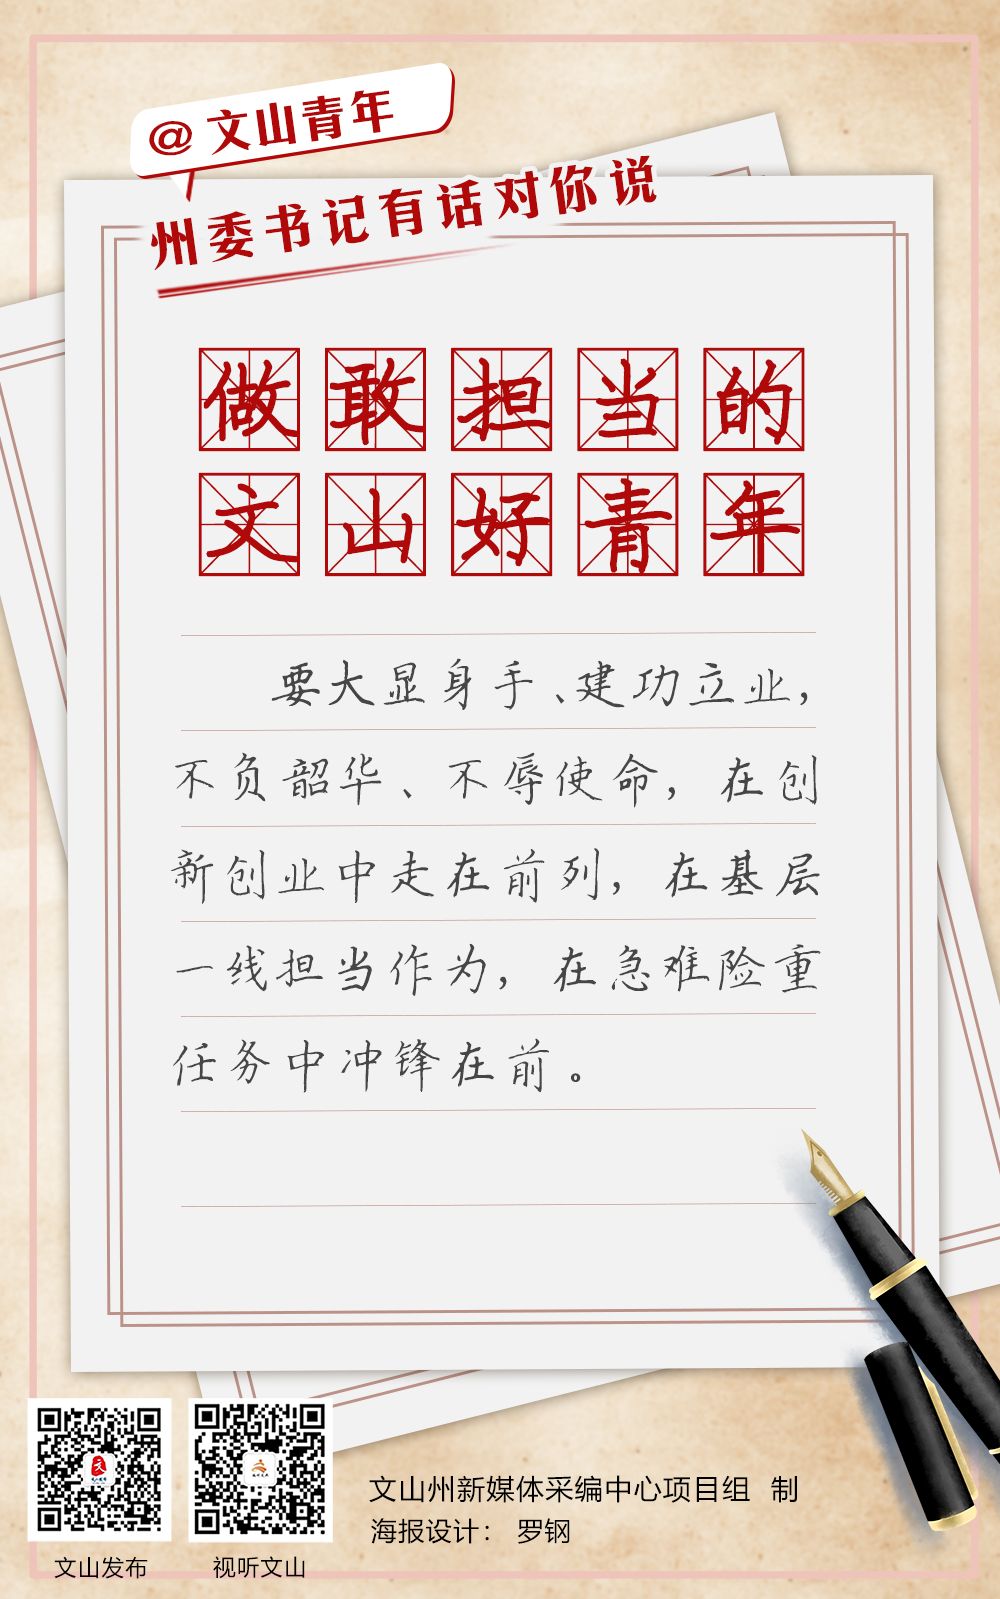 @文山青年
州委书记有话对你说
做敢担当的
文山好青年
要大显身手、建功立业，
不负韶华、不辱使命，在创
新创业中走在前列，在基层
一线担当作为，在急难险重
任务中冲锋在前。
文山州新媒体采编中心项目组 制
海报设计： 罗钢
文山发布 视听文山